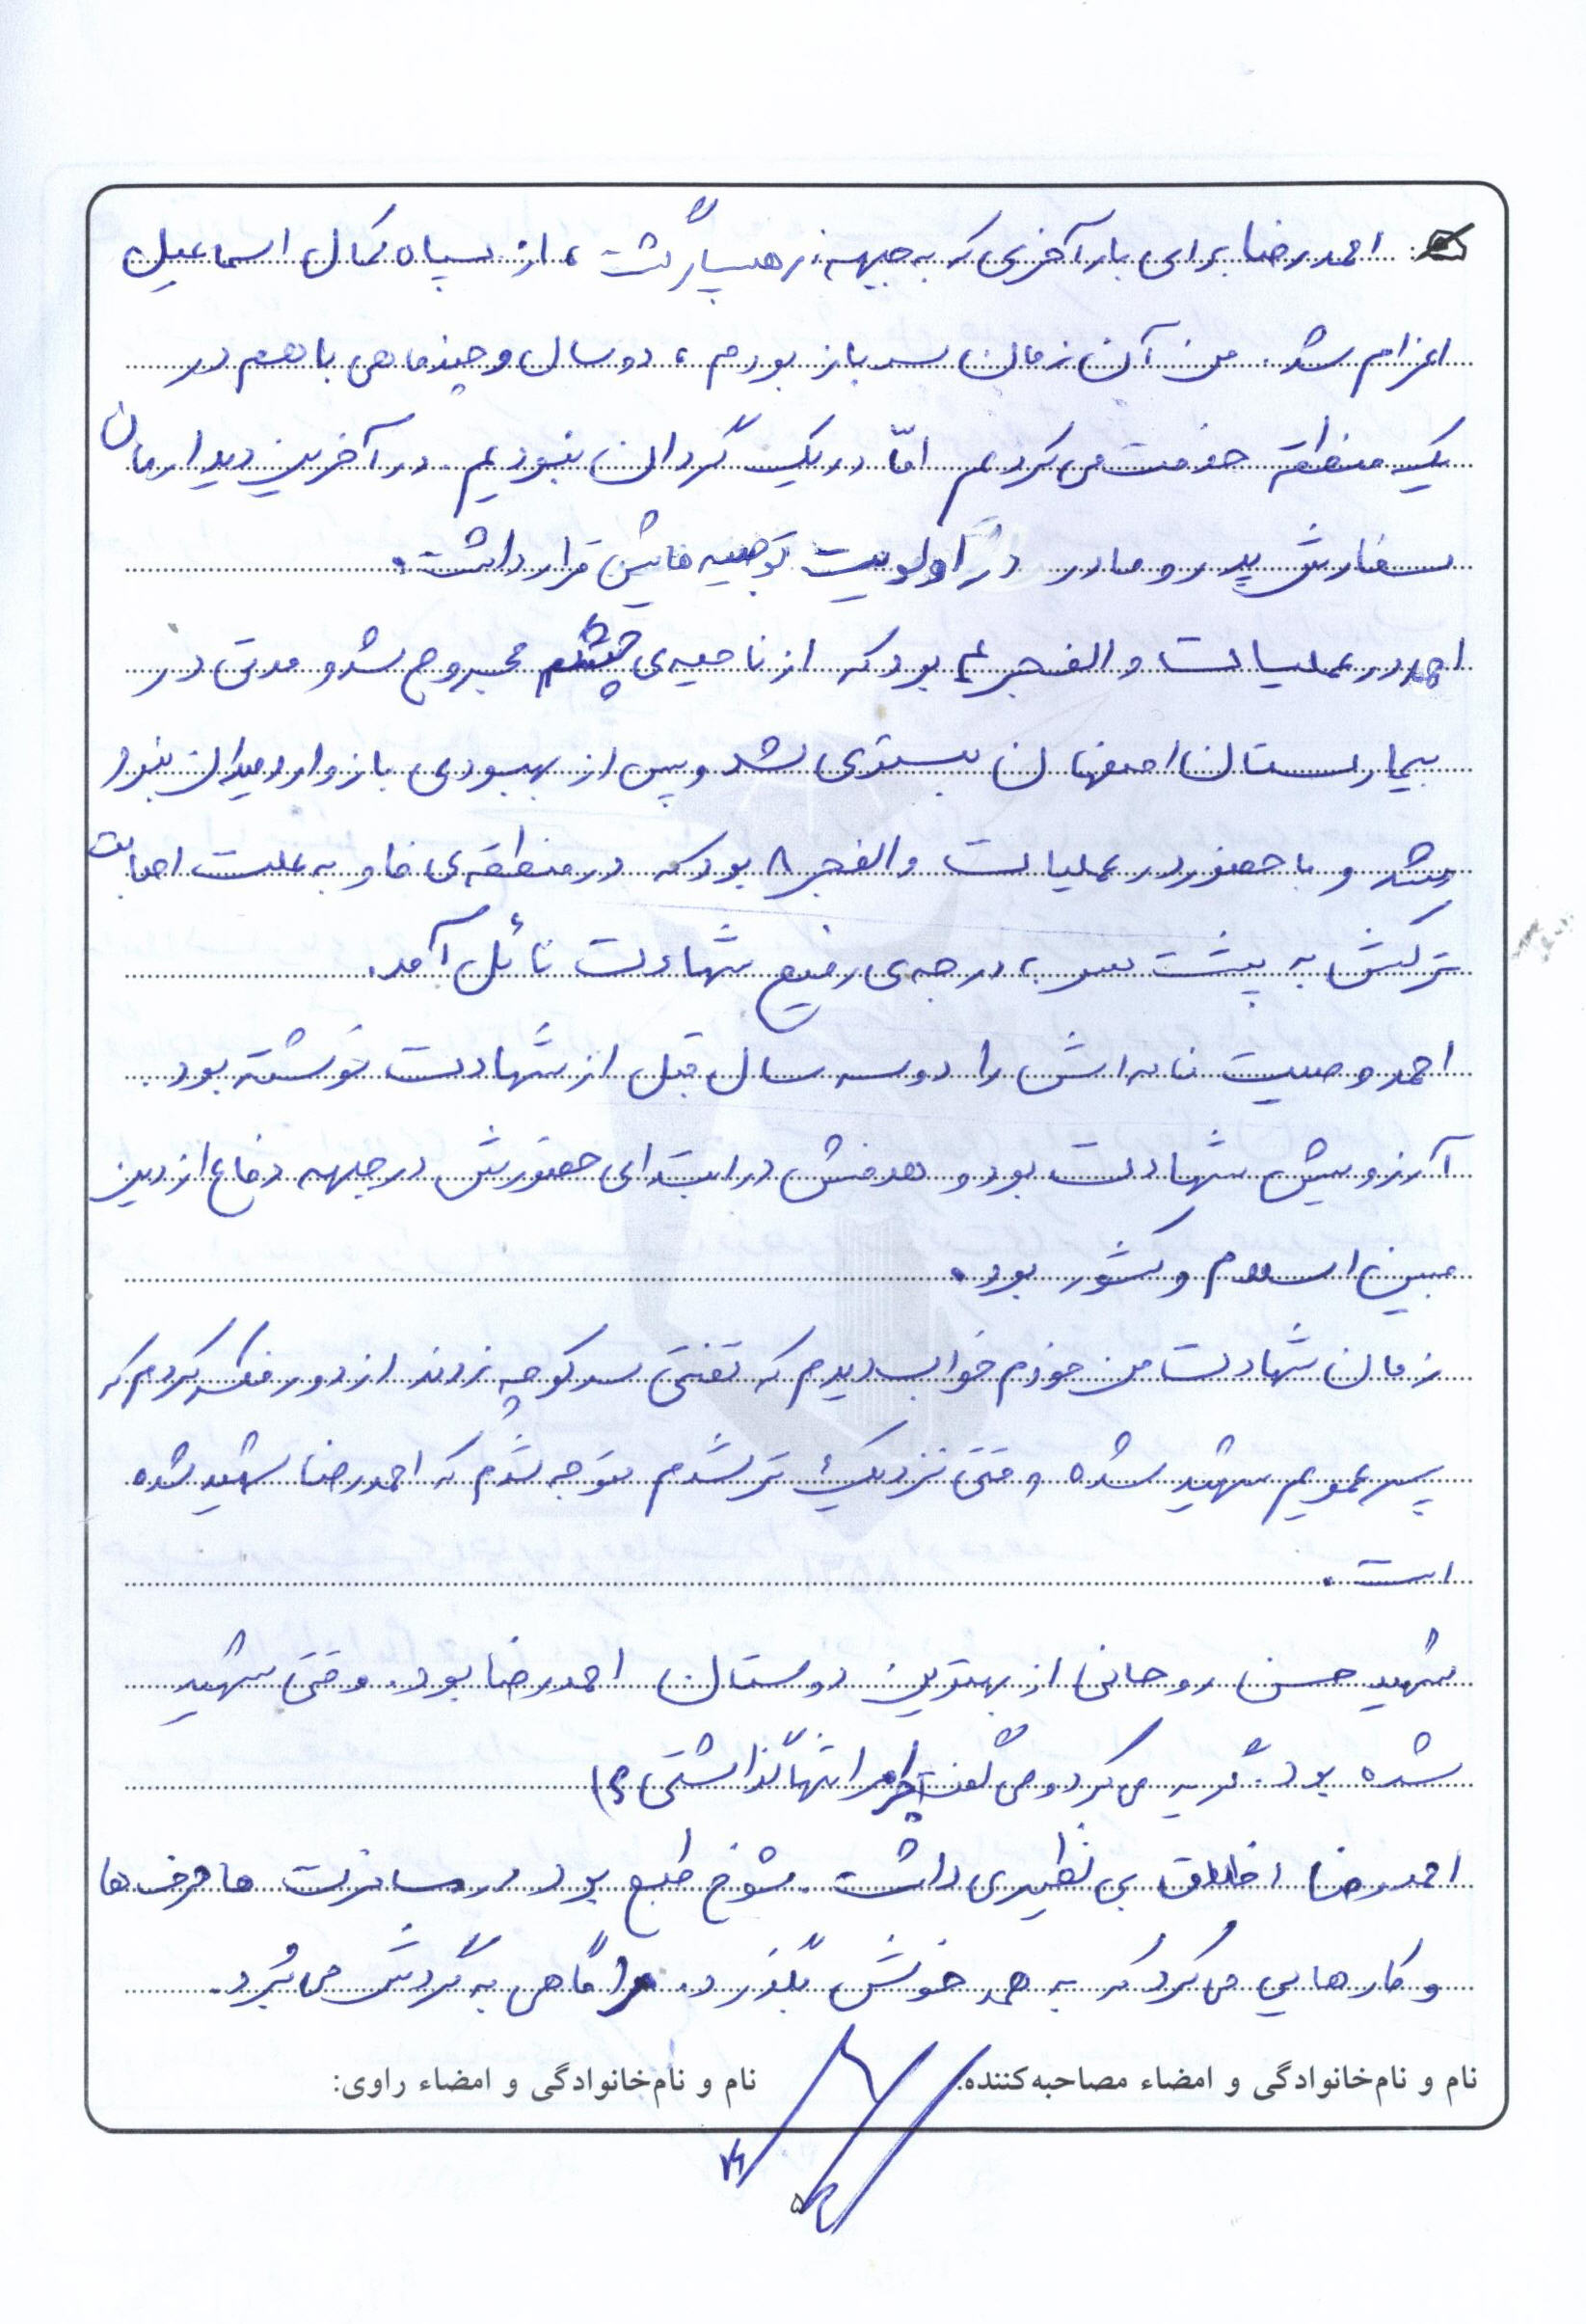 احمدرضا برای بار آخری که به جبهه رهسپار گشت، از سپاه کمال اسماعیل
اعزام شد. من آن زمان سرباز بودم، دو سال و چند ماهی با هم در
یک منطقه خدمت می کردیم امّا در یک گردان نبودیم. در آخرین دیدارمان
سفارش پدر و مادر در اولویت توصیه هایش قرار داشت.
احمد در عملیات والفجر ۴ بود که از ناحیه ی چشم مجروح شد و مدتی در
بیمارستان اصفهان بستری شد و پس از بهبودی باز وارد میدان نبرد
شد و با حضور در عملیات والفجر ۸ بود که در منطقه ی فاو به علت اصابت
ترکش به پشت سر، درجه ی رفیع شهادت نائل آمد.
احمد وصیت نامه اش را دو سه سال قبل از شهادت نوشته بود.
آرزویش شهادت بود و هدفش در ابتدای حضورش در جبهه دفاع از دین
مبین اسلام و کشور بود.
زمان شهادت من خودم خواب دیدم که تفتی سر کوچه زدند از دور فکر کردم که
پسرعمویم شهید شده وقتی نزدیک تر شدم متوجه شدم که احمدرضا شهید شده
است.
شهید حسن روحانی از بهترین دوستان احمدرضا بود. وقتی شهید
شده بود گریه می کرد و می گفت چرا مرا تنها گذاشتی؟)
احمدرضا اخلاق بی نظیری داشت. شوخ طبع بود در مسافرت ها حرف ها
و کارهایی می کرد که به همه خوش بگذرد. مرا گاهی به گردش می بُرد.
نام و نام‌خانوادگی و امضاء مصاحبه‌کننده:
نام و نام‌خانوادگی و امضاء راوی:
۵